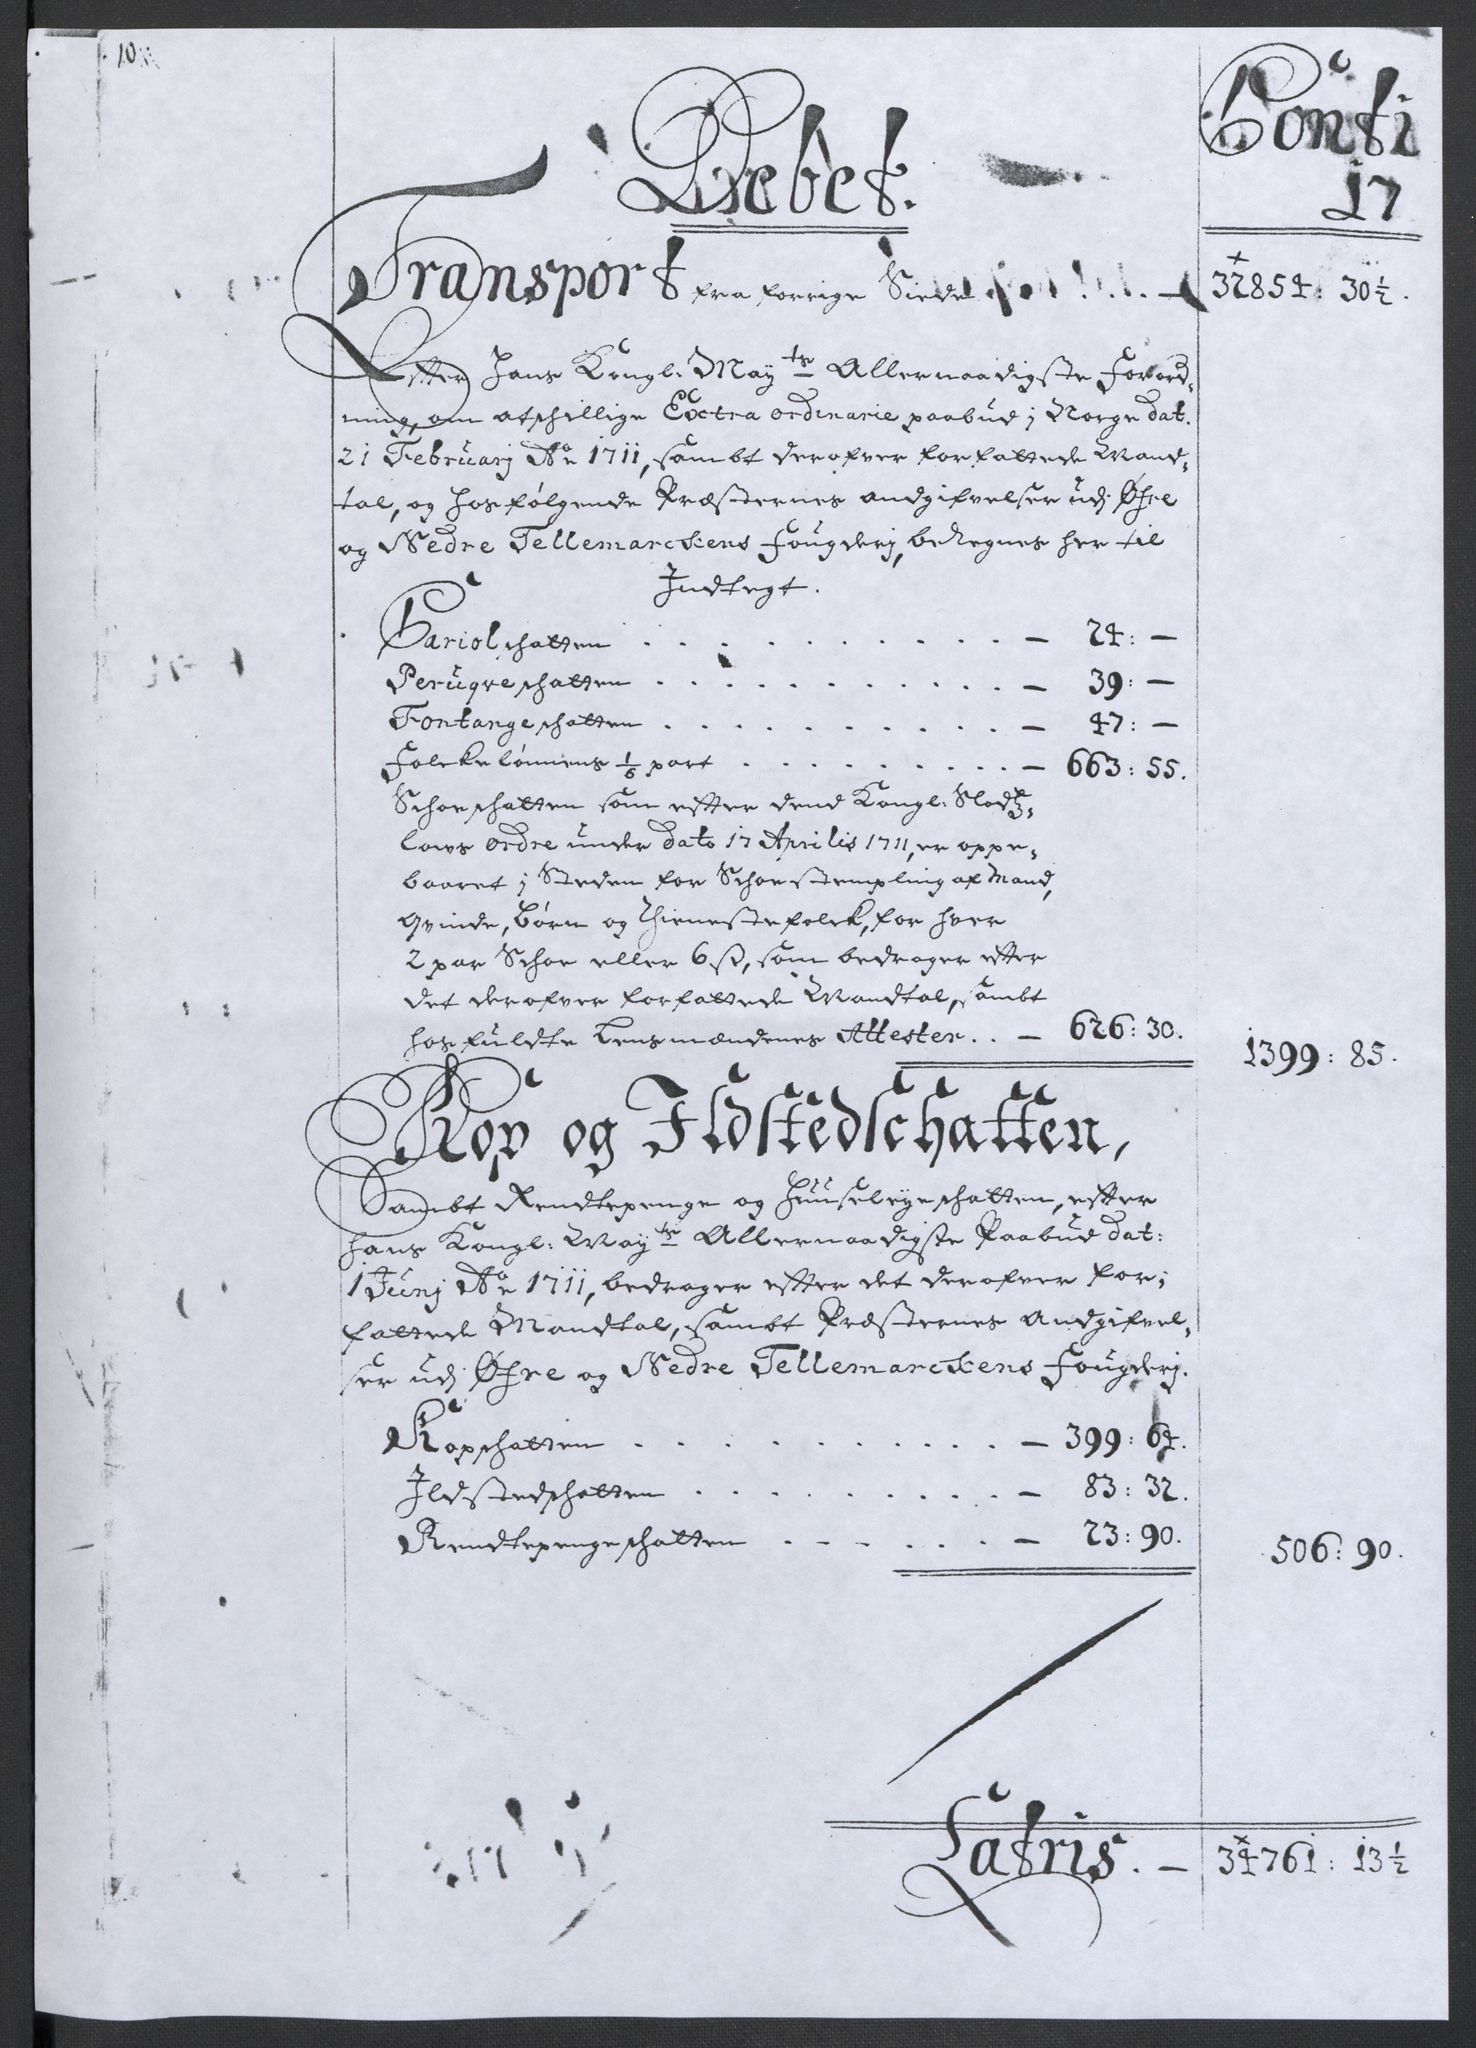 10
Conti
17
Debet.
Transport fra forrige Siide — 32854: 30½.
Efter Hans Kongl: Mayts Allernaadigste Forord-
ning, om atschillige Extra ordinarie paabud i Norge dat.
21 Februarj Ao 1711, sambt derofver forfattede Mand-
tal, og hosfølgende Præsternes andgifvelser udj Øfre
og Nedre Tellemarckens Fougderj, beregnes her til
Indtegt.
Cariolschatten . . . — 24: —
Peruqveschatten . . . — 39: —
Fontangeschatten . . . — 47: —
Folckelønnens 1/6 part . . . — 663: 55.
Schoeschatten som efter dend Kongl: Slodz-
lows ordre under dato 17 Aprilis 1711, er oppe-
baaret i Steden for Schoestempling af Mand,
Qvinde, Børn og Thienestefolck, for hver
2 par Schoe eller 6 s, som bedrager efter
det derofver forfattede Mandtal, sambt
hosfuldte Lensmændenes Attester . . — 626: 30.
1399: 85.
Kop og Ildstedschatten,
Sambt Rendtepenge og Huuseleyeschatten, efter
hans Kongl: Mayts Allernaadigste Paabud dat:
1 Junj Ao 1711, bedrager efter det derofver for-
fattede Mandtal, sambt Præsternes Andgifvel-
ser udj Øfre og Nedre Tellemarckens Fougderj.
Kopschatten . . . — 399: 64.
Ildstedschatten . . . — 83: 32.
Rendtepengeschatten . . . — 23: 90.
506: 90.
Latris. — 34761: 13½